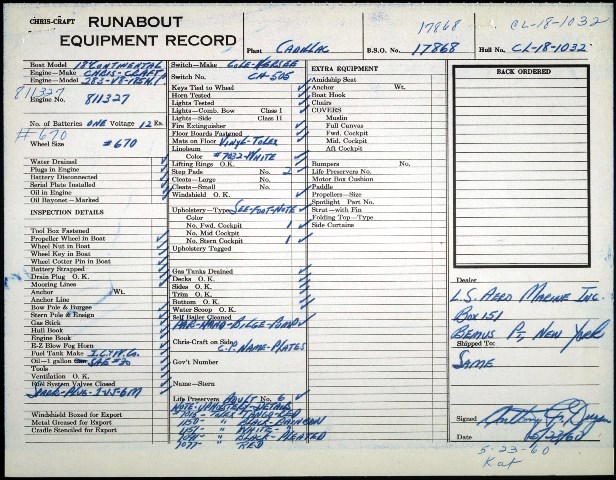 CHRIS-CRAFT RUNABOUT
EQUIPMENT RECORD
Plant CADILLAC
17868
B.S.O. No. 17868
CL-18-1032
Hull No. CL-18-1032
Boat Model 18 CONTINENTAL
Engine—Make CHRIS-CRAFT
Engine—Model 283-V8
811327
Engine No. 811327
No. of Batteries ONE Voltage 12 Ea.
#670
Wheel Size #670
Water Drained
Plugs in Engine
Battery Disconnected
Serial Plate Installed
Oil in Engine
Oil Bayonet—Marked
INSPECTION DETAILS
Tool Box Fastened
Propeller Wheel in Boat
Wheel Nut in Boat
Wheel Key in Boat
Wheel Cotter Pin in Boat
Battery Strapped
Drain Plug O. K.
Mooring Lines
Anchor Wt.
Anchor Line
Bow Pole & Burgee
Stern Pole & Ensign
Gas Stick
Hull Book
Engine Book
E-Z Blew Fog Horn
Fuel Tank Make
Oil—1 gallon SAE-30
Tools
Ventilation O. K.
Fuel System Valves Closed
Windshield Boxed for Export
Metal Greased for Export
Cradle Stenciled for Export
Switch—Make COLE-HERSEE
Switch No. CH-505
Keys Tied to Wheel
Horn Tested
Lights Tested
Lights—Comb. Bow Class I
Lights—Side Class II
Fire Extinguisher
Floor Boards Fastened
Mats on Floor VINYL-TOLEX
Linoleum
Color #7032-WHITE
Lifting Rings O. K.
Step Pads No. 2
Cleats—Large No.
Cleats—Small No.
Windshield O. K.
Upholstery—Type SEE-FOOT-NOTE
Color
No. Fwd. Cockpit 1
No. Mid Cockpit
No. Stern Cockpit 1
Upholstery Tagged
Gas Tanks Drained
Decks O. K.
Sides O. K.
Trim O. K.
Bottom O. K.
Water Scoop O. K.
Self Bailer Cleaned
PAR-HAND-BILGE-PUMP
Chris-Craft on Sides
C.P. NAME-PLATES
Gov't Number
Name—Stern
Life Preservers ADULT No. 6
NOTE-UPHOLSTERY-DETAILS
EXTRA EQUIPMENT
Amidship Seat
Anchor Wt.
Boat Hook
Chairs
COVERS
Muslin
Full Canvas
Fwd. Cockpit
Mid. Cockpit
Aft Cockpit
Bumpers No.
Life Preservers No.
Motor Box Cushion
Paddle
Propellers—Size
Spotlight Part No.
Strut—with Fin
Folding Top—Type
Side Curtains
BACK ORDERED
Dealer
L.S. AERO MARINE INC.
BOX 151
BEMUS PT, NEW YORK
Shipped To:
SAME
Signed
Date 5/23/60
5-23-60
Kat